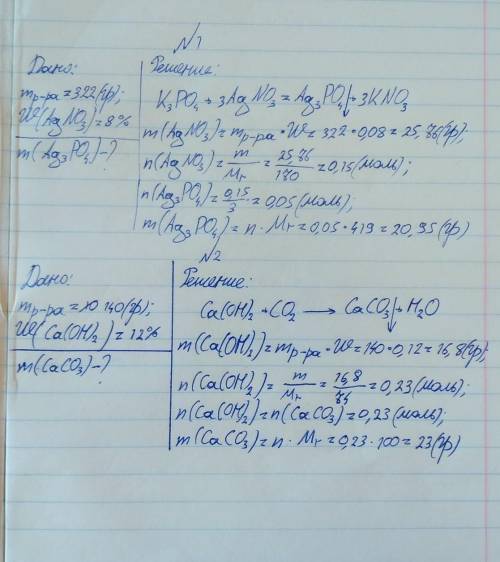 №1
Дано:
mр-ра = 322(гр);
W(AgNO₃) = 8%
m(Ag₃PO₄) - ?
Решение:
K₃PO₄ + 3AgNO₃ = Ag₃PO₄↓ + 3KNO₃
m(AgNO₃) = mр-ра · W = 322 · 0,08 = 25,76(гр);
n(AgNO₃) = m/Mr = 25,76/170 = 0,15(моль);
n(Ag₃PO₄) = 0,15/3 = 0,05(моль);
m(Ag₃PO₄) = n · Mr = 0,05 · 419 = 20,95(гр)
№2
Дано:
mр-ра = 140(гр);
W(Ca(OH)₂) = 12%
m(CaCO₃) - ?
Решение:
Ca(OH)₂ + CO₂ → CaCO₃↓ + H₂O
m(Ca(OH)₂) = mр-ра · W = 140 · 0,12 = 16,8(гр);
n(Ca(OH)₂) = m/Mr = 16,8/74 = 0,23(моль);
n(Ca(OH)₂) = n(CaCO₃) = 0,23(моль);
m(CaCO₃) = n · Mr = 0,23 · 100 = 23(гр)